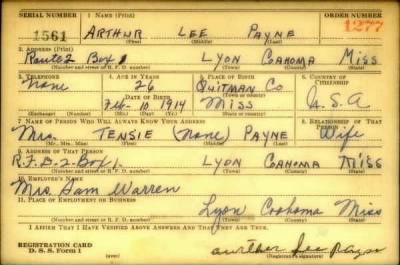 SERIAL NUMBER 1. NAME (Print) ORDER NUMBER
1561 ARTHUR LEE PAYNE 1277
(First) (Middle) (Last)
2. ADDRESS (Print)
Route 2 Box 1 Lyon Coahoma Miss
(Number and street or R. F. D. number) (Town) (County) (State)
3. TELEPHONE 4. AGE IN YEARS 5. PLACE OF BIRTH 6. COUNTRY OF CITIZENSHIP
None 26 Quitman Co
DATE OF BIRTH (Town or county)
Feb-10-1914 Miss U.S.A
(Exchange) (Number) (Mo.) (Day) (Yr.) (State or country)
7. NAME OF PERSON WHO WILL ALWAYS KNOW YOUR ADDRESS 8. RELATIONSHIP OF THAT PERSON
Mrs. TENSIE (None) PAYNE Wife
(Mr., Mrs., Miss) (First) (Middle) (Last)
9. ADDRESS OF THAT PERSON
R.F.D-2-Box 1. Lyon Coahoma Miss
(Number and street or R. F. D. number) (Town) (County) (State)
10. EMPLOYER'S NAME
Mrs. Sam Warren
11. PLACE OF EMPLOYMENT OR BUSINESS
Lyon Coohoma Miss
(Number and street or R. F. D. number) (Town) (County) (State)
I AFFIRM THAT I HAVE VERIFIED ABOVE ANSWERS AND THAT THEY ARE TRUE.
REGISTRATION CARD
D. S. S. Form 1 (over) (Registrant's signature)
Lee